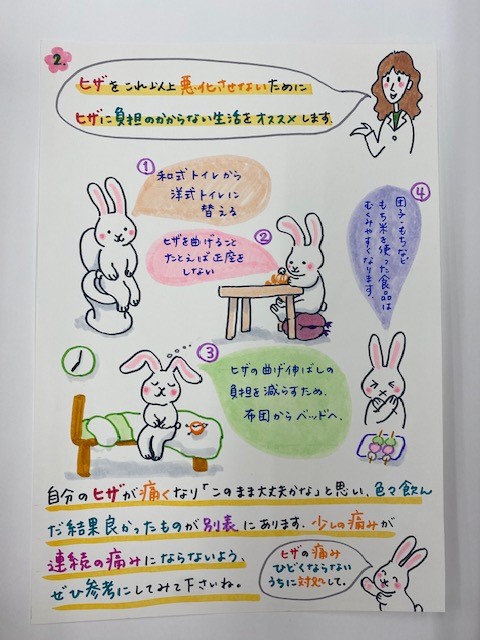 2.
ヒザをこれ以上悪化させないために
ヒザに負担のかからない生活をオススメします。
①
和式トイレから
洋式トイレに
替える
②
ヒザを曲げること
たとえば正座を
しない
④
団子・もちなど
もち米を使った食品は
むくみやすくなります。
③
ヒザの曲げ伸ばしの
負担を減らすため、
布団からベッドへ。
自分のヒザが痛くなり「このまま大丈夫かな」と思い、色々飲ん
だ結果良かったものが別表にあります。少しの痛みが
連続の痛みにならないよう、
ぜひ参考にしてみて下さいね。
ヒザの痛み
ひどくならない
うちに対処して。